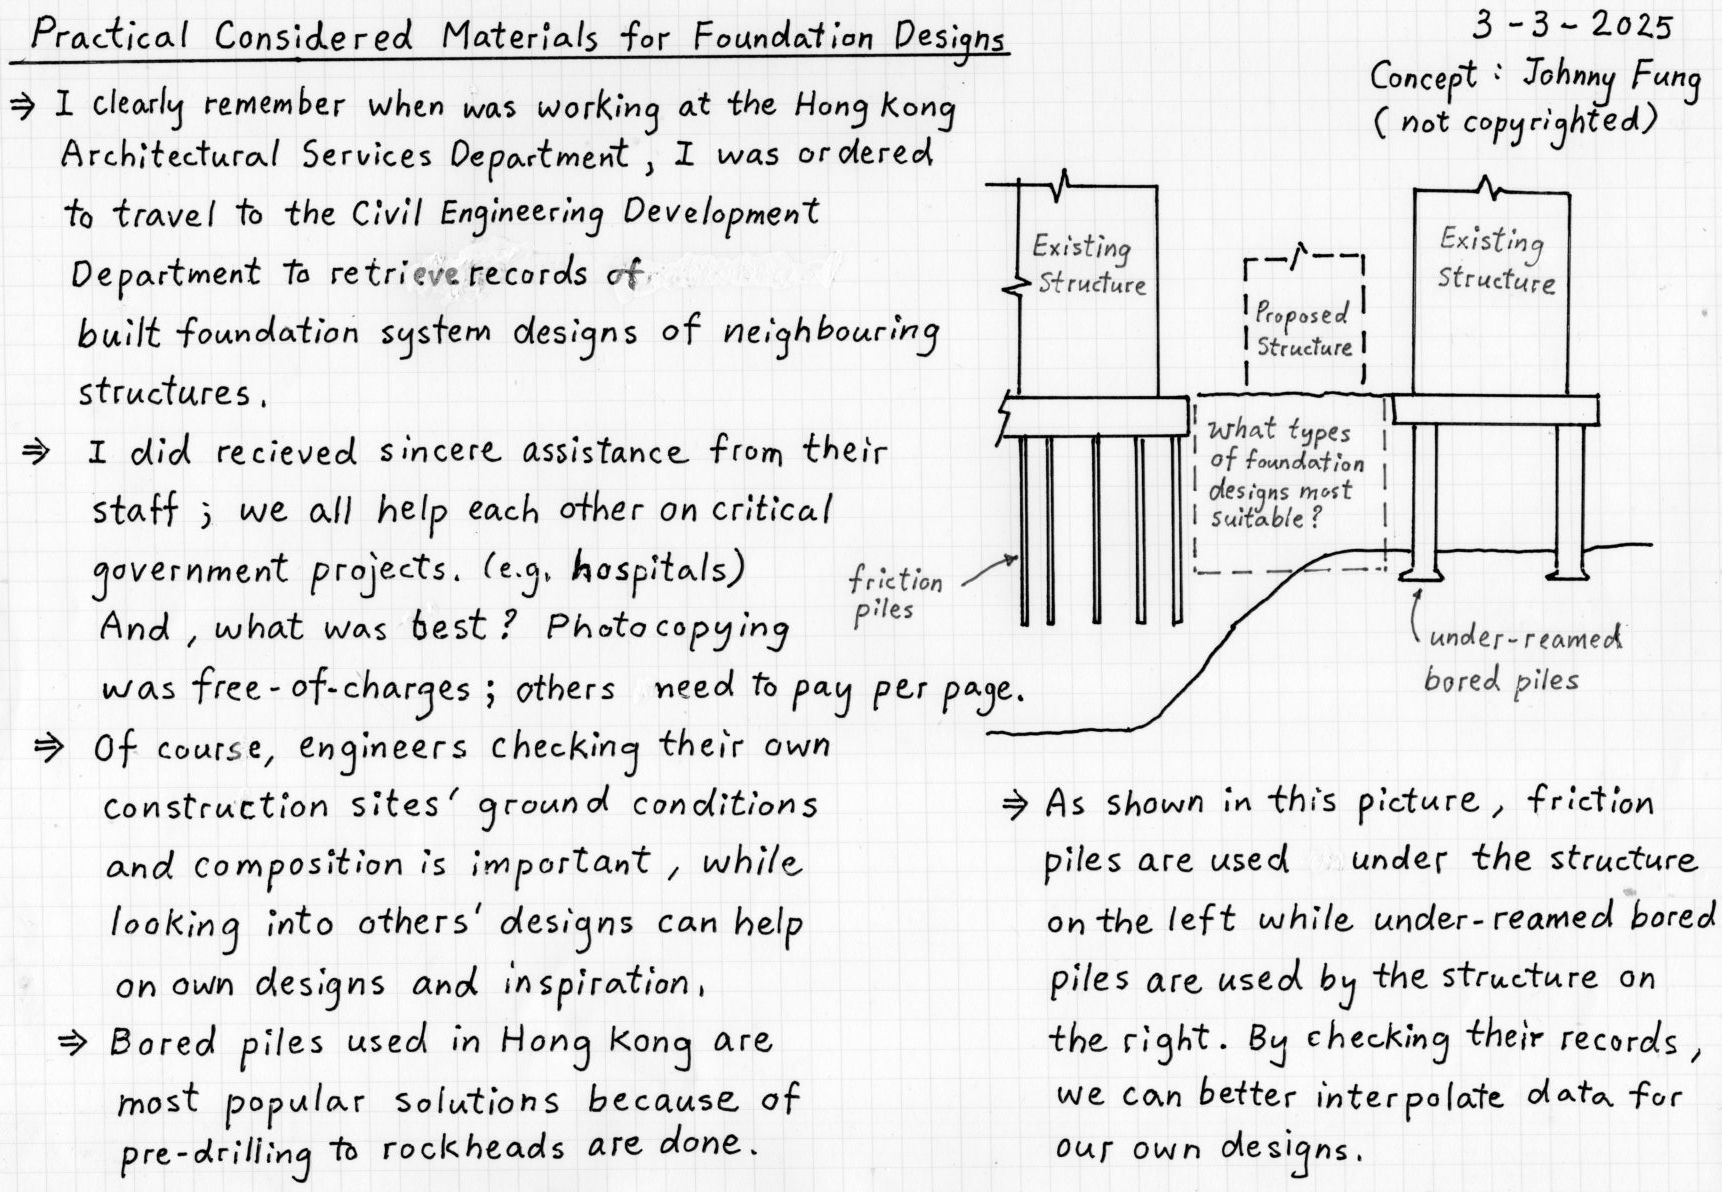 Practical Considered Materials for Foundation Designs
3-3-2025
Concept : Johnny Fung
(not copyrighted)
⇒ I clearly remember when was working at the Hong Kong
Architectural Services Department, I was ordered
to travel to the Civil Engineering Development
Department to retrieve records of
built foundation system designs of neighbouring
structures.
⇒ I did recieved sincere assistance from their
staff ; we all help each other on critical
government projects. (e.g. hospitals)
And, what was best? Photocopying
was free-of-charges ; others need to pay per page.
⇒ Of course, engineers checking their own
construction sites' ground conditions
and composition is important, while
looking into others' designs can help
on own designs and inspiration.
⇒ Bored piles used in Hong Kong are
most popular solutions because of
pre-drilling to rockheads are done.
Existing
Structure
Proposed
Structure
Existing
Structure
what types
of foundation
designs most
suitable?
friction
piles
under-reamed
bored piles
⇒ As shown in this picture, friction
piles are used under the structure
on the left while under-reamed bored
piles are used by the structure on
the right. By checking their records,
we can better interpolate data for
our own designs.